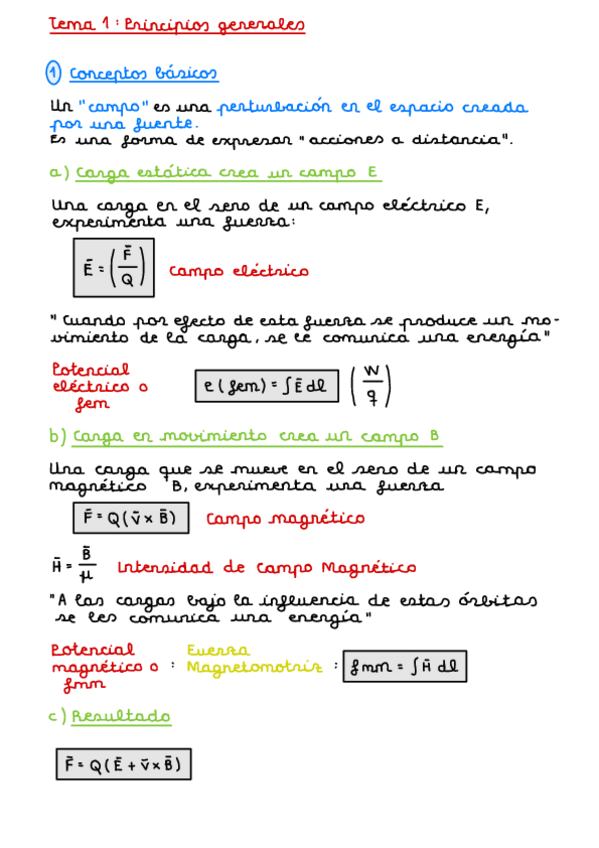 Tema 1 : Principios generales
1 Conceptos básicos
Un "campo" es una perturbación en el espacio creada
por una fuente.
Es una forma de expresar "acciones a distancia".
a) Carga estática crea un campo E
Una carga en el seno de un campo eléctrico E,
experimenta una fuerza:
Ē = (F̄/Q) Campo eléctrico
"Cuando por efecto de esta fuerza se produce un mo-
vimiento de la carga, se le comunica una energía"
Potencial
eléctrico o
fem
e (fem) = ∫ Ē dl (W/q)
b) Carga en movimiento crea un campo B
Una carga que se mueve en el seno de un campo
magnético 'B, experimenta una fuerza
F̄ = Q (v̄ x B̄) Campo magnético
H̄ = B̄/μ Intensidad de Campo Magnético
"A las cargas bajo la influencia de estas órbitas
se les comunica una energía"
Potencial
magnético o :
fmm
Fuerza
Magnetomotriz :
fmm = ∫ H̄ dl
c) Resultado
F̄ = Q (Ē + v̄ x B̄)